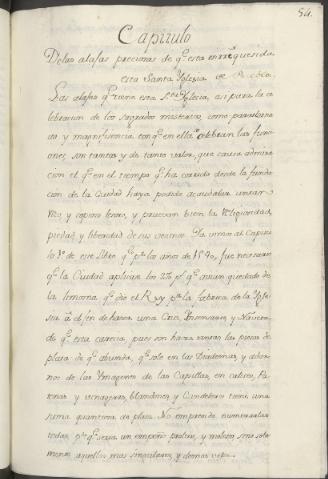 54.
Capitulo
De las alajas preciosas de qe. esta enrriquesida
esta Santa Yglesia de Puebla.
Las alajas qe. tiene esta Sta. Yglesia, asi para la ce
lebracion de los sagrados misterios, como para el orna
to y magnificencia con qe. en ella se celebran las funci
ones, son tantas y de tanto valor, que causa admira
cion el qe. en el tiempo qe. ha corrido desde la funda
cion de la Ciudad haya podido acaudalar un tan
rico y copioso tesoro, y prueban bien la religiosidad,
piedad y liberalidad de sus vecinos. Ya vimos al Capitu
lo 1o. de este Libro qe. pr. los años de 1540, fue necesario
qe. la Ciudad aplicara los 20 ps. qe. avian quedado de
la limosna, qe. dio el Rey pa. la fabrica de la Ygle
sia á el fin de hacer una Cruz, Yncensario, y Naveta
de qe. esta carecia, pues son hasta tantas las piezas de
plata de qe. abunda, qe. solo en las Diademas, y ador
nos de las Ymagenes de las Capillas, en calices, Pa
tenas y vinageras, blandones, y Candeleros tiene una
suma quantiosa de plata. No emprendo numerarlas
todas, pr. qe. seria un empeño prolixo, y molesto, sino sola
mente aquellas mas singulares, y de mas valor.